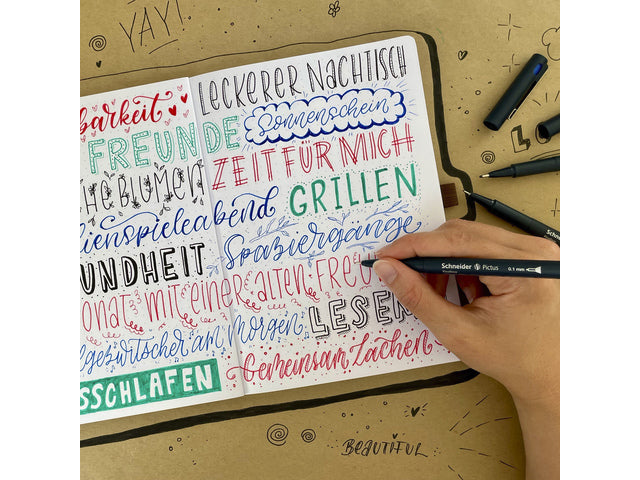 YAY!
LECKERER NACHTISCH
barkeit
Sonnenschein
FREUNDE
ZEIT FÜR MICH
HE BLUMEN
GRILLEN
ienspieleabend
Spaziergänge
UNDHEIT
onat mit einer alten Freu
LESEN
gezwitscher am Morgen
Gemeinsam Lachen
SSCHLAFEN
BEAUTIFUL
Schneider Pictus 0.1 mm